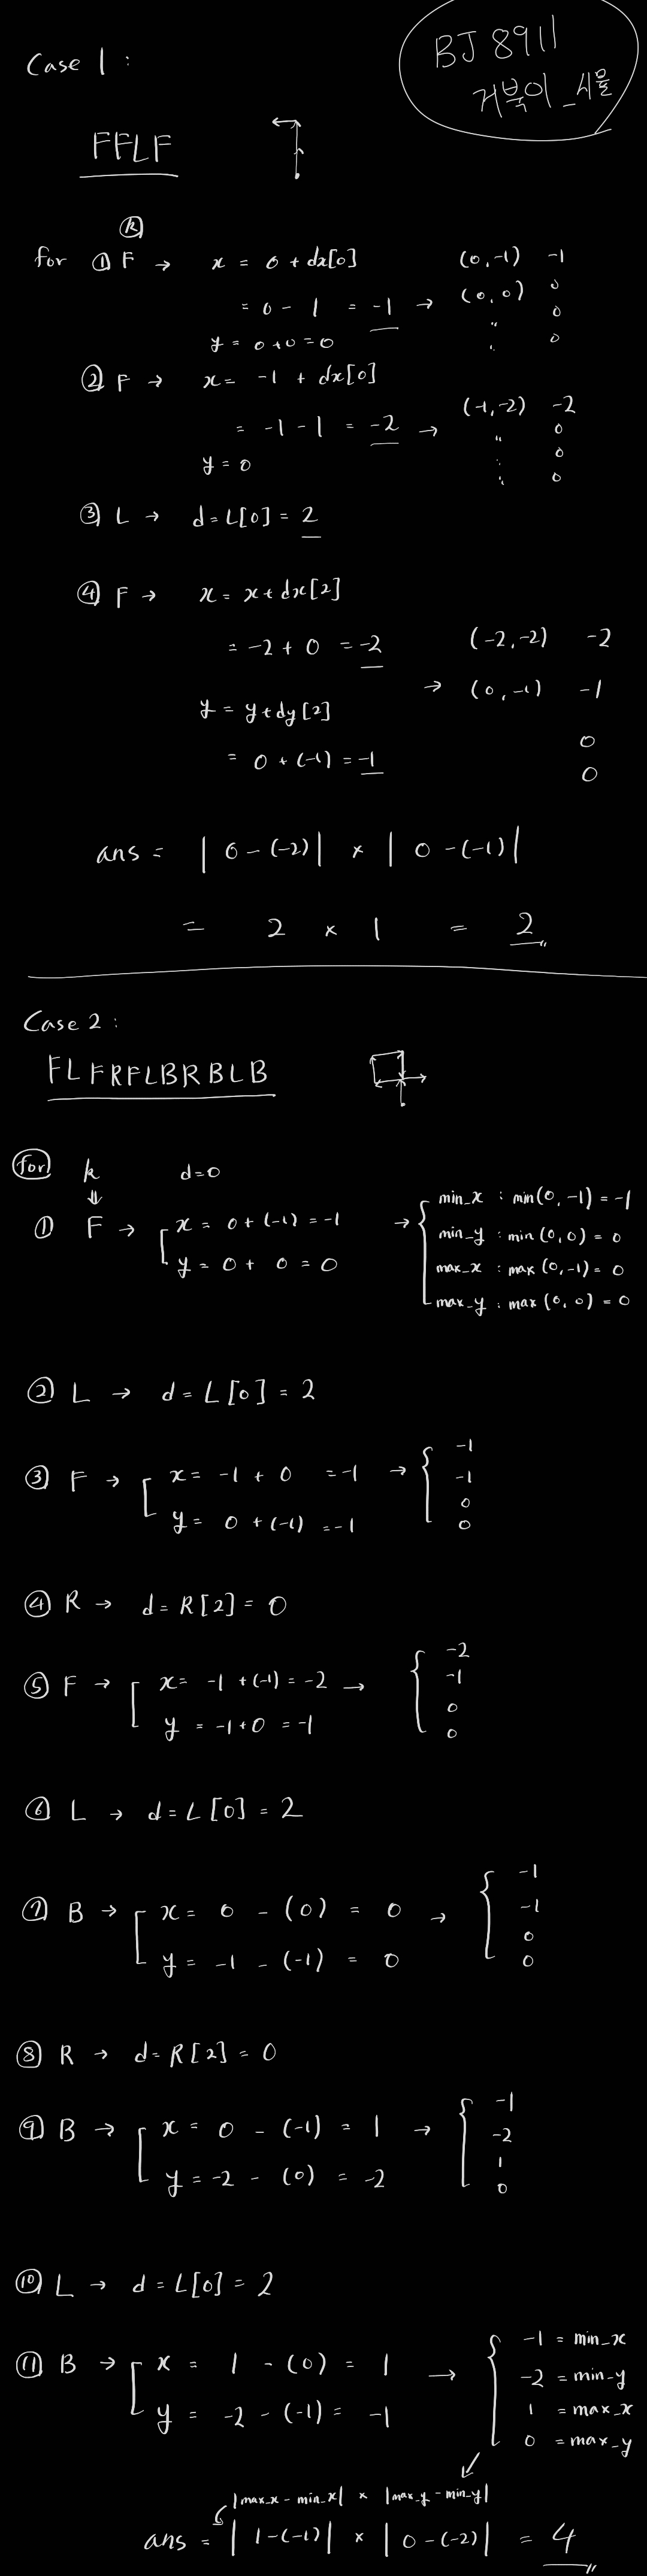 BJ 8911
거북이_시뮬
Case 1 :
FFLF
ⓚ
for ① F → x = 0 + dx[0] (0, -1) -1
= 0 - 1 = -1 → (0, 0) 0
y = 0 + 0 = 0 〃 0
〃 0
② F → x = -1 + dx[0]
= -1 - 1 = -2 → (-1, -2) -2
y = 0 〃 0
〃 0
〃 0
③ L → d = L[0] = 2
④ F → x = x + dx[2]
= -2 + 0 = -2 (-2, -2) -2
→ (0, -1) -1
y = y + dy[2]
0
= 0 + (-1) = -1 0
ans = | 0 - (-2) | × | 0 - (-1) |
= 2 × 1 = 2
Case 2 :
FLFRFLBRBLB
for k d=0
⇓
① F → x = 0 + (-1) = -1 → min_x : min(0, -1) = -1
y = 0 + 0 = 0 min_y : min(0, 0) = 0
max_x : max(0, -1) = 0
max_y : max(0, 0) = 0
② L → d = L[0] = 2
③ F → x = -1 + 0 = -1 → -1
-1
y = 0 + (-1) = -1 0
0
④ R → d = R[2] = 0
⑤ F → x = -1 + (-1) = -2 → -2
-1
y = -1 + 0 = -1 0
0
⑥ L → d = L[0] = 2
⑦ B → x = 0 - (0) = 0 → -1
-1
y = -1 - (-1) = 0 0
0
⑧ R → d = R[2] = 0
⑨ B → x = 0 - (-1) = 1 → -1
-2
y = -2 - (0) = -2 1
0
⑩ L → d = L[0] = 2
⑪ B → x = 1 - (0) = 1 → -1 = min_x
-2 = min_y
y = -2 - (-1) = -1 1 = max_x
0 = max_y
|max_x - min_x| × |max_y - min_y|
ans = | 1 - (-1) | × | 0 - (-2) | = 4